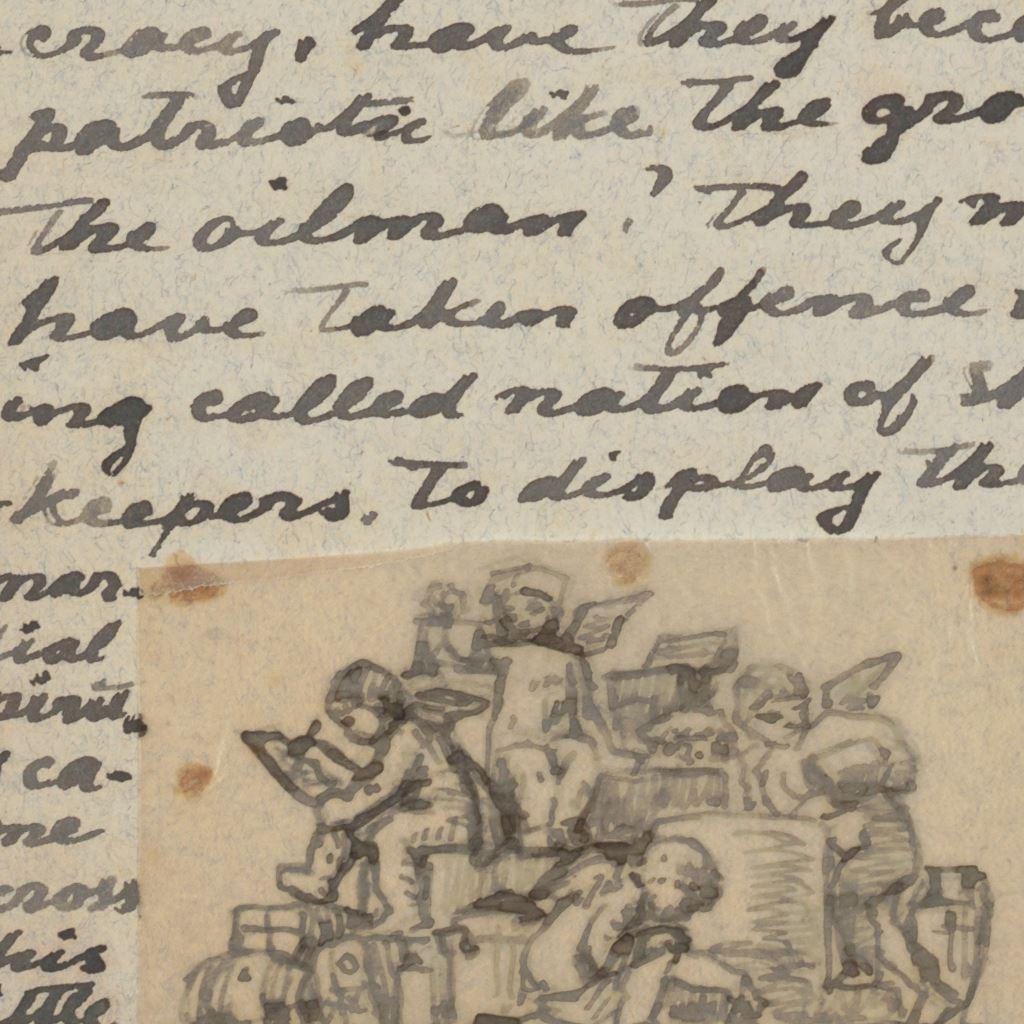 cracy, have they bec
patriotic like the gro
the oilman? They m
have taken offence
ing called nation of sh
-keepers. To display the
mar-
tial
spirit,
ca-
me
cross
this
little